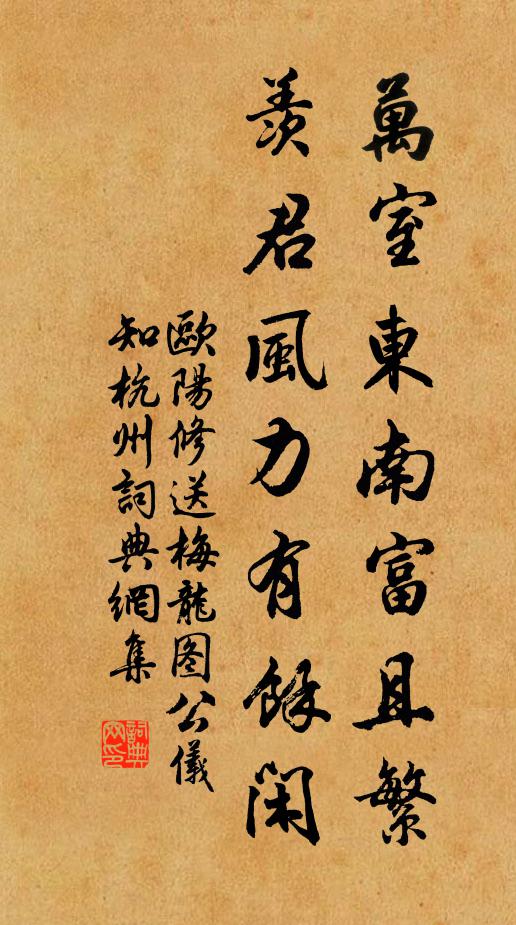 萬室東南富且繁
羨君風力有餘閑
歐陽修送梅龍图公儀
知杭州詞典網集
詞典网印